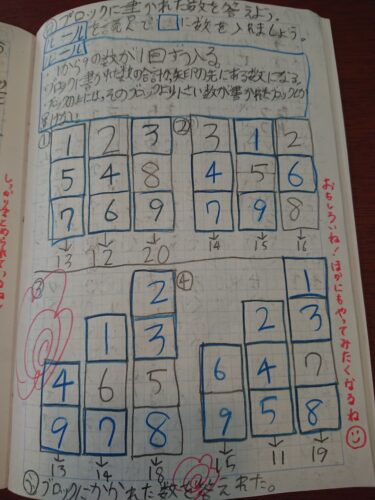 ブロックに書かれた数を答えよう。
ルール
ルールを読んで□に数を入れましょう。
・1から9の数が1回ずつ入る。
・ブロックに書かれた数の合計が、矢印の先にある数になる。
① ②
1 2 3 3 1 2
5 4 8 4 5 6
7 6 9 7 9 8
13 12 20 14 15 16
③ ④
2 1
1 3 2 3
4 6 5 6 4 7
9 7 8 9 5 8
13 14 18 15 11 19
ブロックにかかれた数を答えれた。
しっかりまとめられているね!
おもしろいね!ほかにもやってみたくなるね